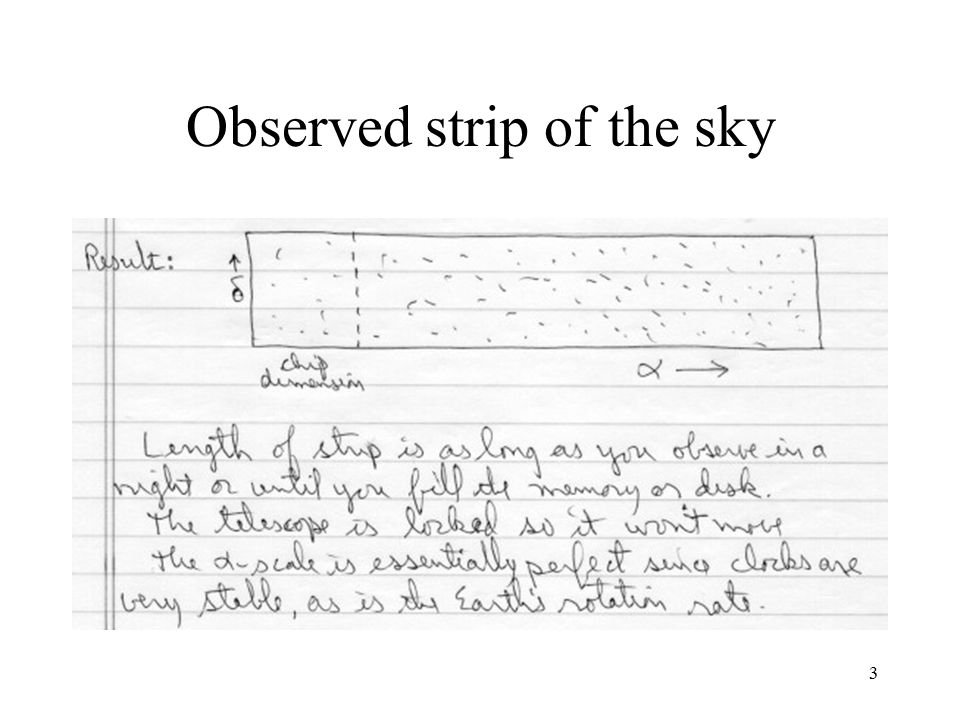 Observed strip of the sky
Result: ↑ δ
chip
dimension
α →
Length of strip is as long as you observe in a
night or until you fill the memory or disk.
The telescope is locked so it won't move
The α-scale is essentially perfect since clocks are
very stable, as is the Earth's rotation rate.
3